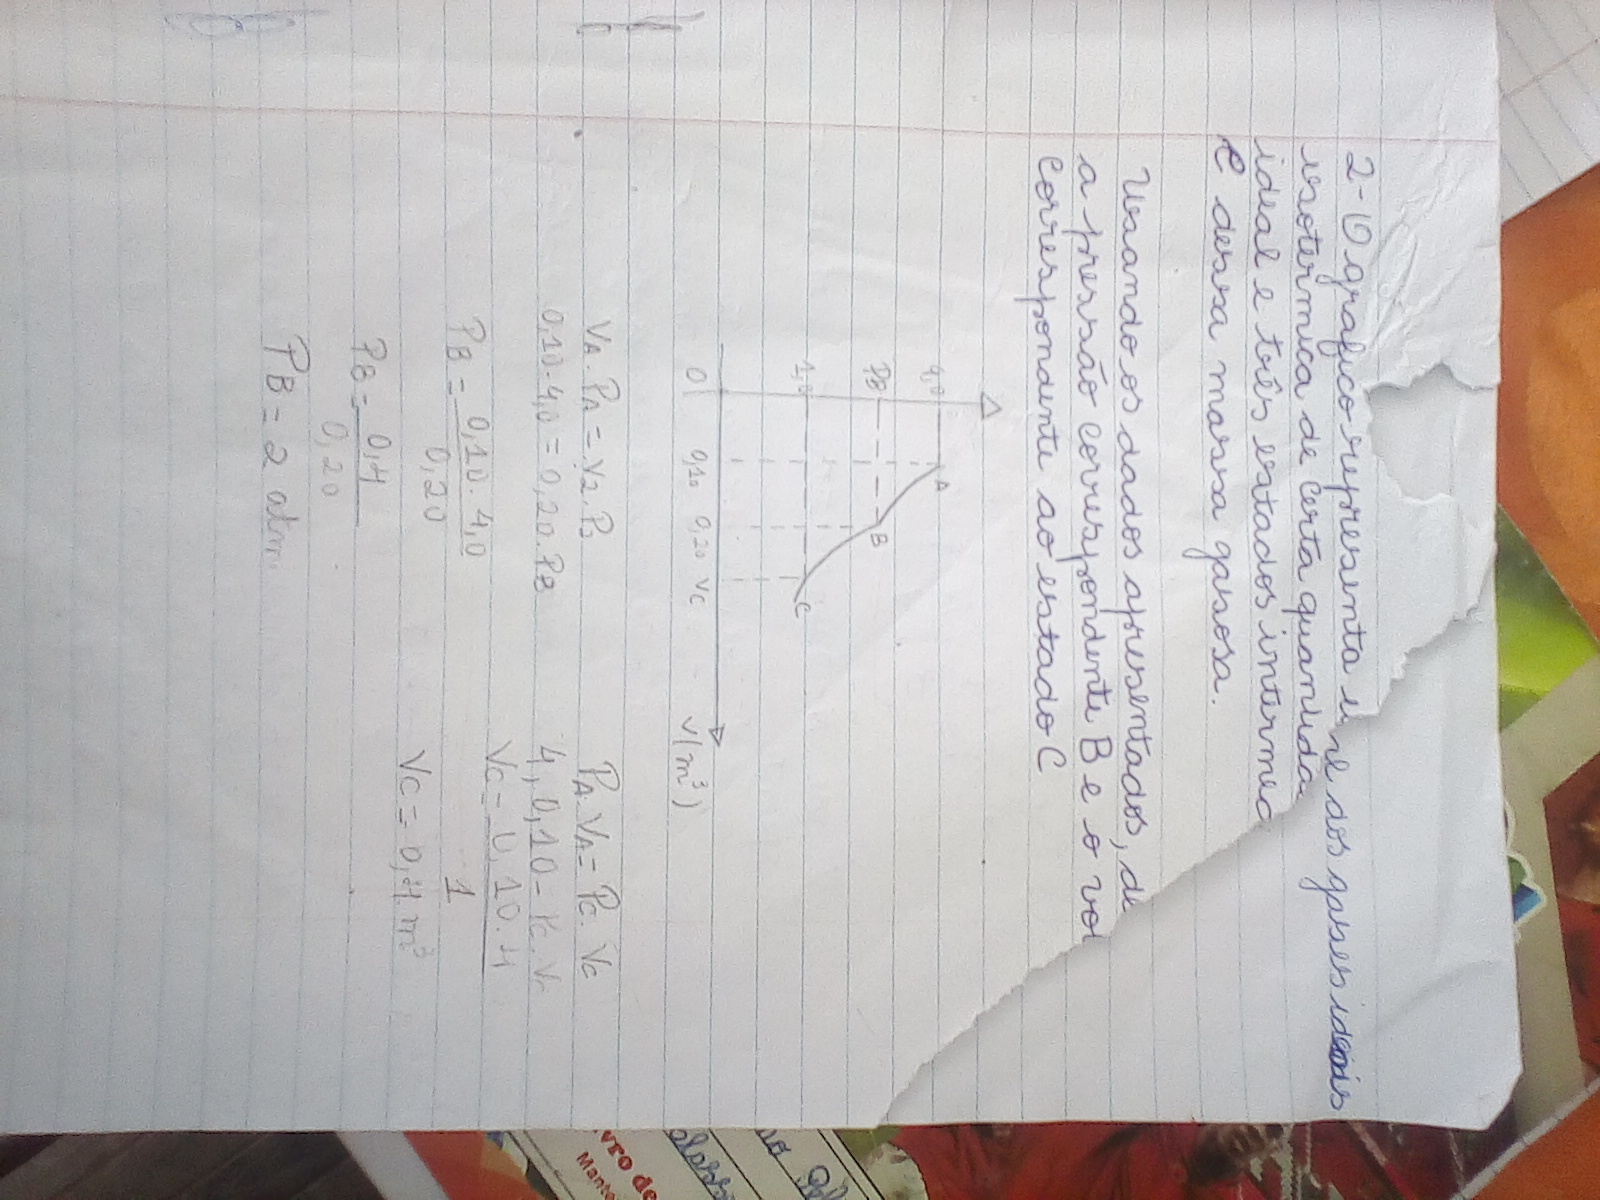 2-O grafico representa u al dos gases ideais
isotermica de certa quantida
ideal e três estados intermed
C dessa massa gasosa.
Usando os dados apresentados, de
a pressão correspondente B e o vol
correspondente ao estado C
4,0
PB
1,0
0
A
B
C
0,10 0,20 VC V(m³)
VA.PA = V2.PB
0,10.4,0 = 0,20.PB
PB = 0,10.4,0
0,20
PB = 0,4
0,20
PB = 2 atm
PA.VA = PC.VC
4,0,10 = PC.Vc
VC = 0,10.4
1
VC = 0,4 m³
vro de